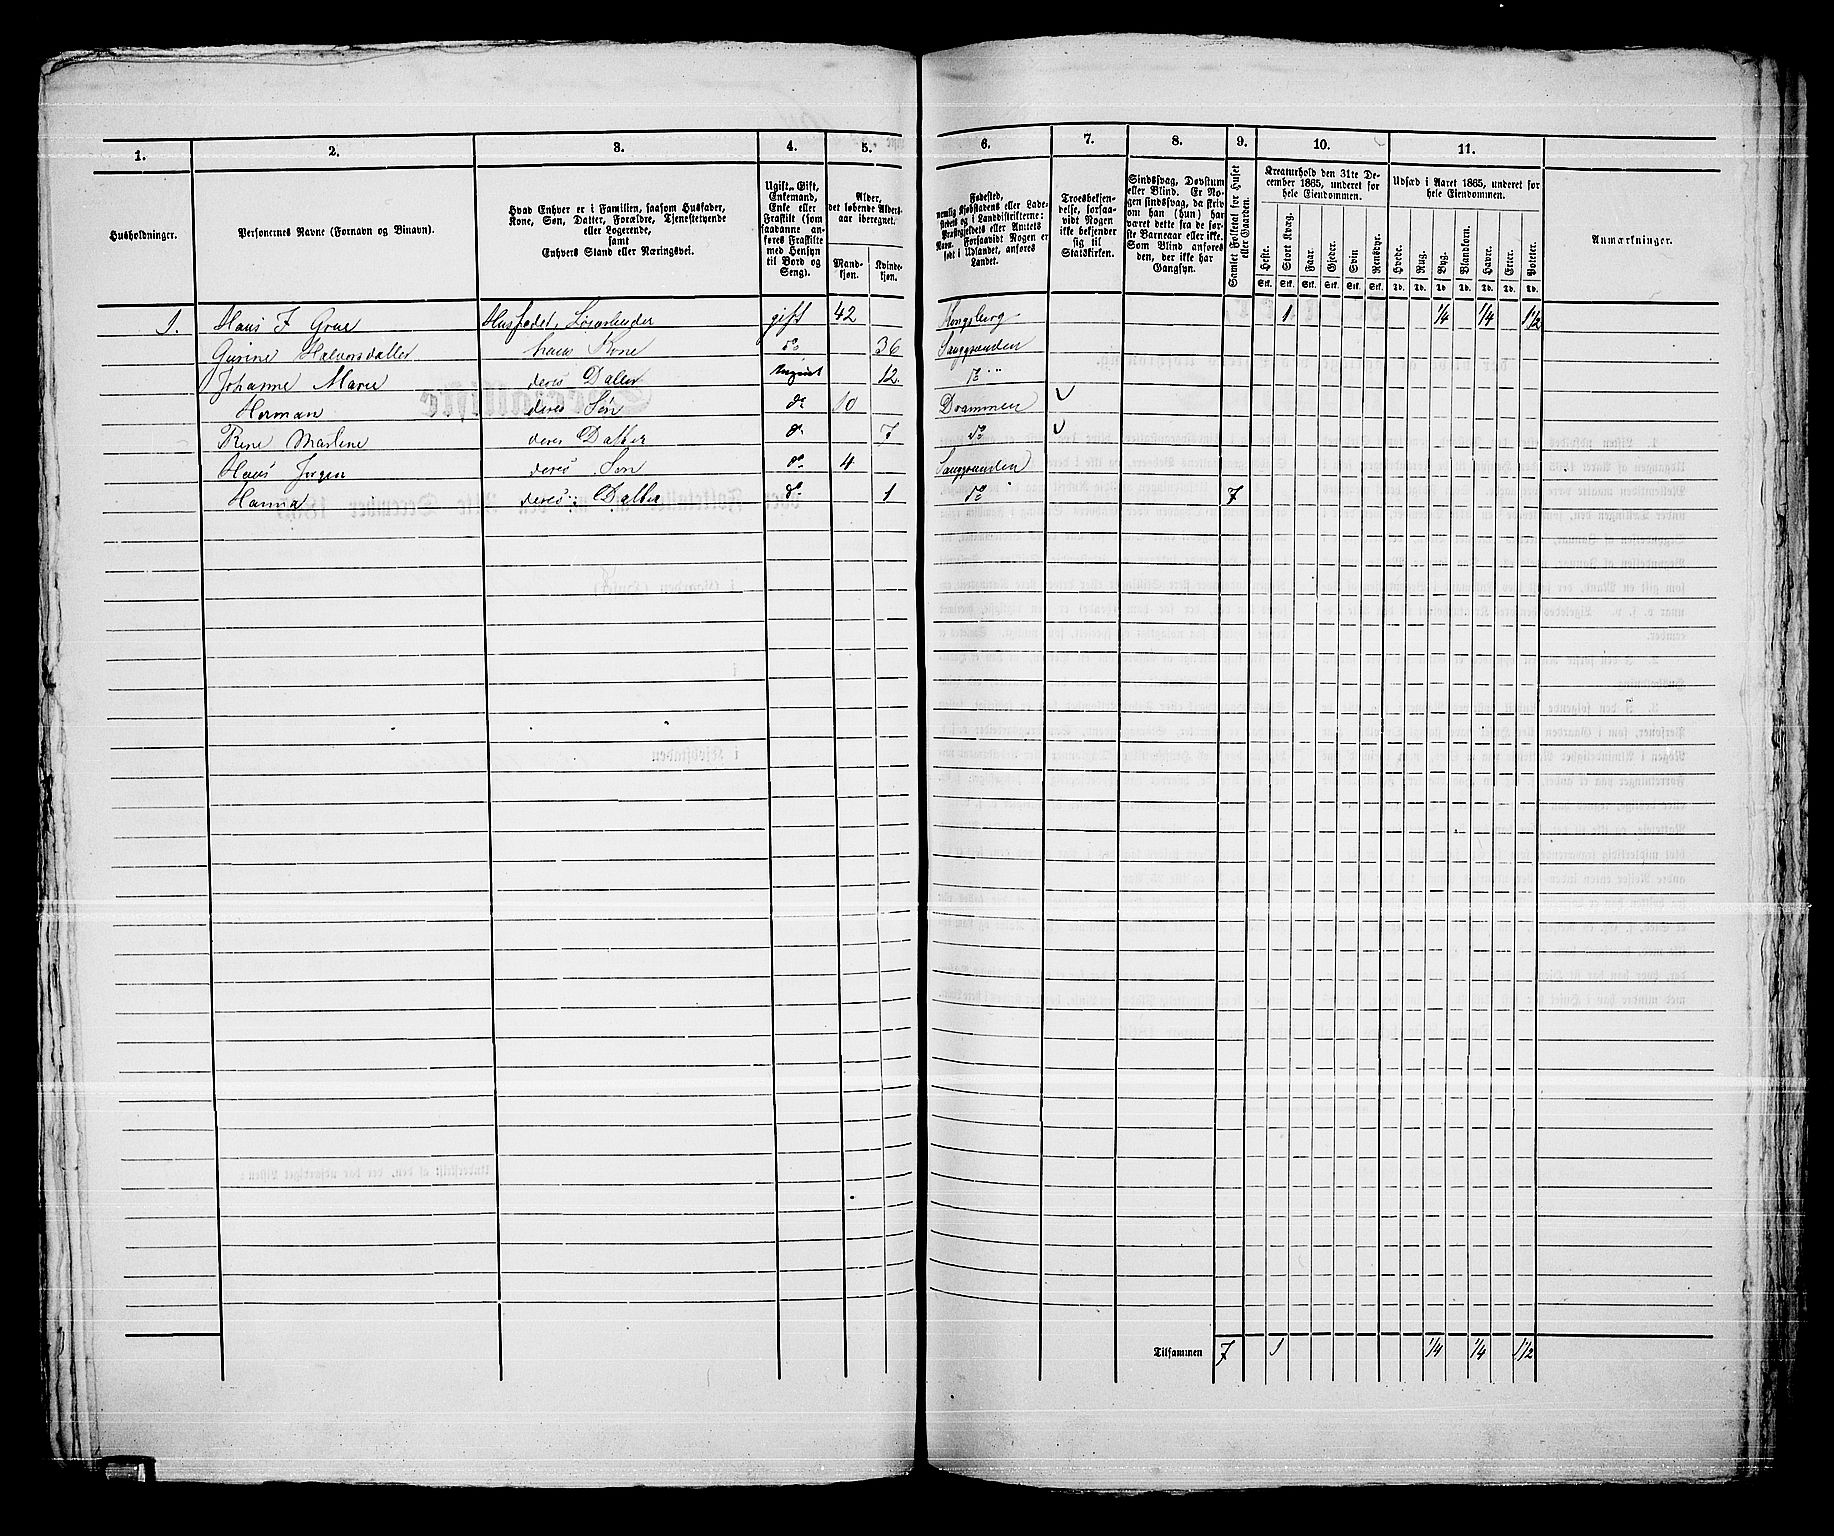 1. 2. 3. 4. 5. 6. 7. 8. 9. 10. 11.
Husholdninger.
Personernes Navne (Fornavn og Binavn).
Hvad Enhver er i Familien, saasom Husfader,
Kone, Søn, Datter, Forældre, Tjenestetyende
eller Logerende,
samt
Enhvers Stand eller Næringsvei.
Ugift, Gift,
Enkemand,
Enke eller
Fraskilt (som
saadanne an-
føres Fraskilte
med Hensyn
til Bord og
Seng).
Alder,
det løbende Alders-
aar iberegnet.
Mand-
kjøn.
Kvinde-
kjøn.
Fødested,
nemlig Kjøbstadens eller Lade-
stedets og i Landdistrikterne:
Præstegjeldets eller Amtets
Navn. Forsaavidt Nogen er
født i Udlandet, anføres
Landet.
Troesbekjen-
delse, forsaa-
vidt Nogen
ikke bekjender
sig til
Statskirken.
Sindssvag, Døvstum
eller Blind. Er No-
gen sindssvag, da skriv
om han (hun) har
været dette fra de før-
ste Barneaar eller ikke.
Som Blind anføres
den, der ikke har
Gangsyn.
Samlet Folketal for Huset
eller Gaarden.
Kreaturhold den 31te De-
cember 1865, underet for
hele Eiendommen.
Heste. Stort Kvæg. Faar Gjeder. Svin Rensdyr.
Stk. Stk. Stk. Stk. Stk. Stk.
Udsæd i Aaret 1865, underet for
hele Eiendommen.
Hvede. Rug. Byg. Blandkorn. Havre. Erter. Poteter.
Td. Td. Td. Td. Td. Td. Td.
Anmærkninger.
1. Hans F Grue Husfader, Løsarbeider gift 42 Kongsberg 1 1/4 1/4 1 1/2
Gurine Halvorsdatter hans Kone do 36 Sanggrunden
Johanne Marie deres Dater Ungivt 12. do
Herman deres Søn do 10 Drammen
Rine Martene deres Datter do 7 do
Hans Jørgen deres Søn do 4 Sanggrunden
Hanna deres Datter do 1 do 7
Tilsammen 7 1 1/4 1/4 1 1/2